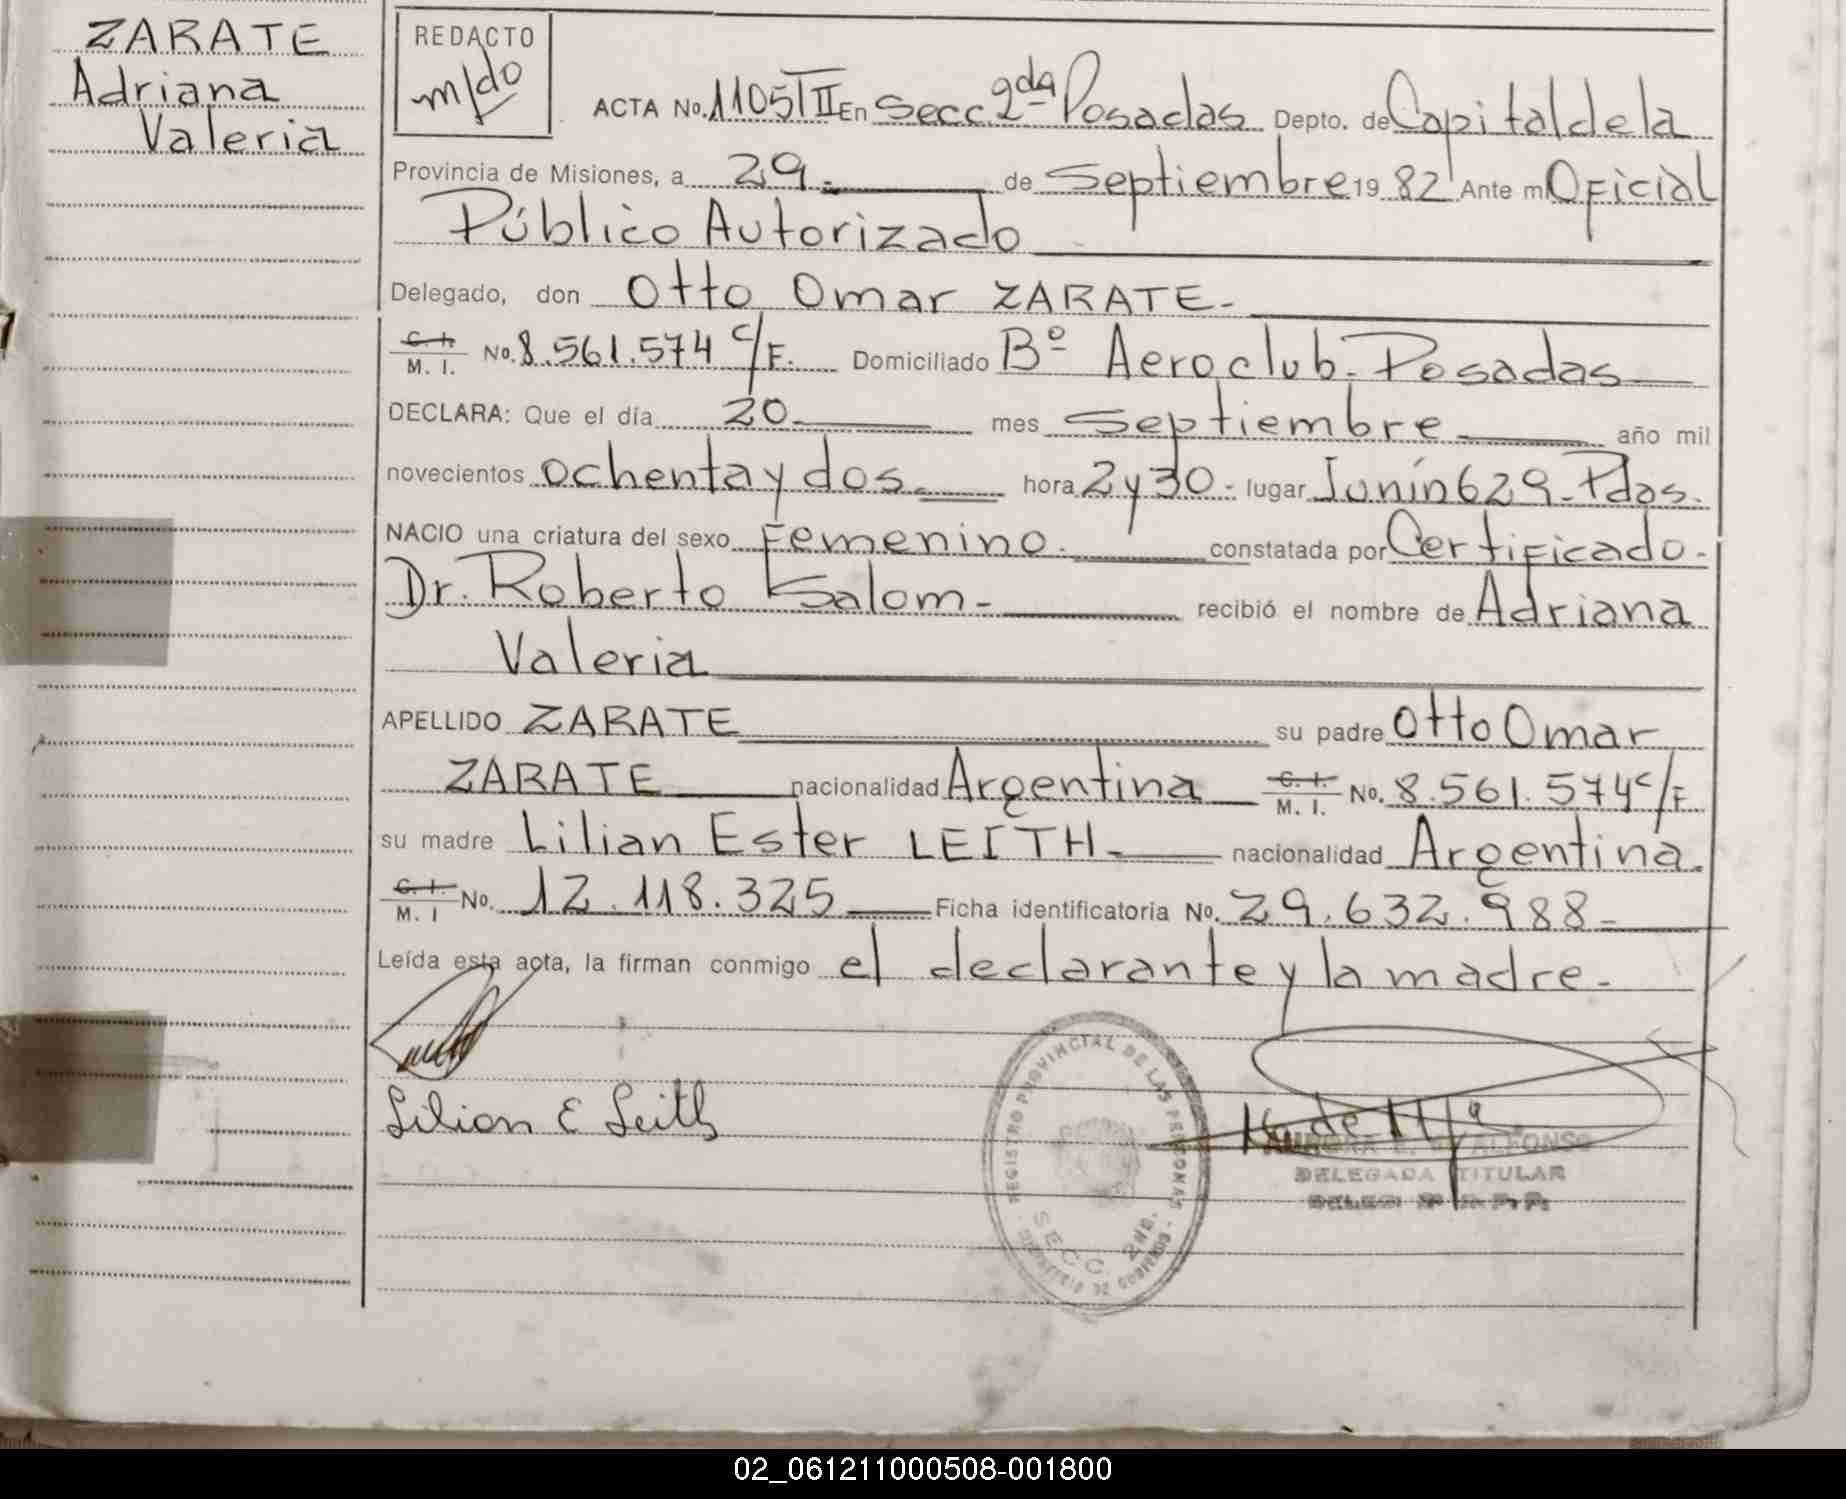 ZARATE
Adriana
Valeria
REDACTO
m/do
ACTA No. 1105/TII En Secc. 2da Posadas Depto. de Capital de la
Provincia de Misiones, a 29.- de Septiembre 1982 Ante mi Oficial
Público Autorizado
Delegado, don Otto Omar ZARATE-
C. I.
M. I. No. 8.561.574 C/F. Domiciliado Bº Aeroclub. Posadas
DECLARA: Que el día 20 mes Septiembre año mil
novecientos ochenta y dos. hora 2 y 30- lugar Junín 629- Pdas.
NACIO una criatura del sexo Femenino. constatada por Certificado-
Dr. Roberto Salom- recibió el nombre de Adriana
Valeria
APELLIDO ZARATE su padre Otto Omar
ZARATE nacionalidad Argentina C. I.
M. I. No. 8.561.574 C/F
su madre Lilian Ester LEITH- nacionalidad Argentina.
C. I.
M. I No. 12.118.325 Ficha identificatoria No. 29.632.988-
Leída esta acta, la firman conmigo el declarante y la madre-
Lilian E Leith
REGISTRO PROVINCIAL DE LAS PERSONAS
SECC. 2da.
ALFONSO
DELEGADA TITULAR
02_061211000508-001800